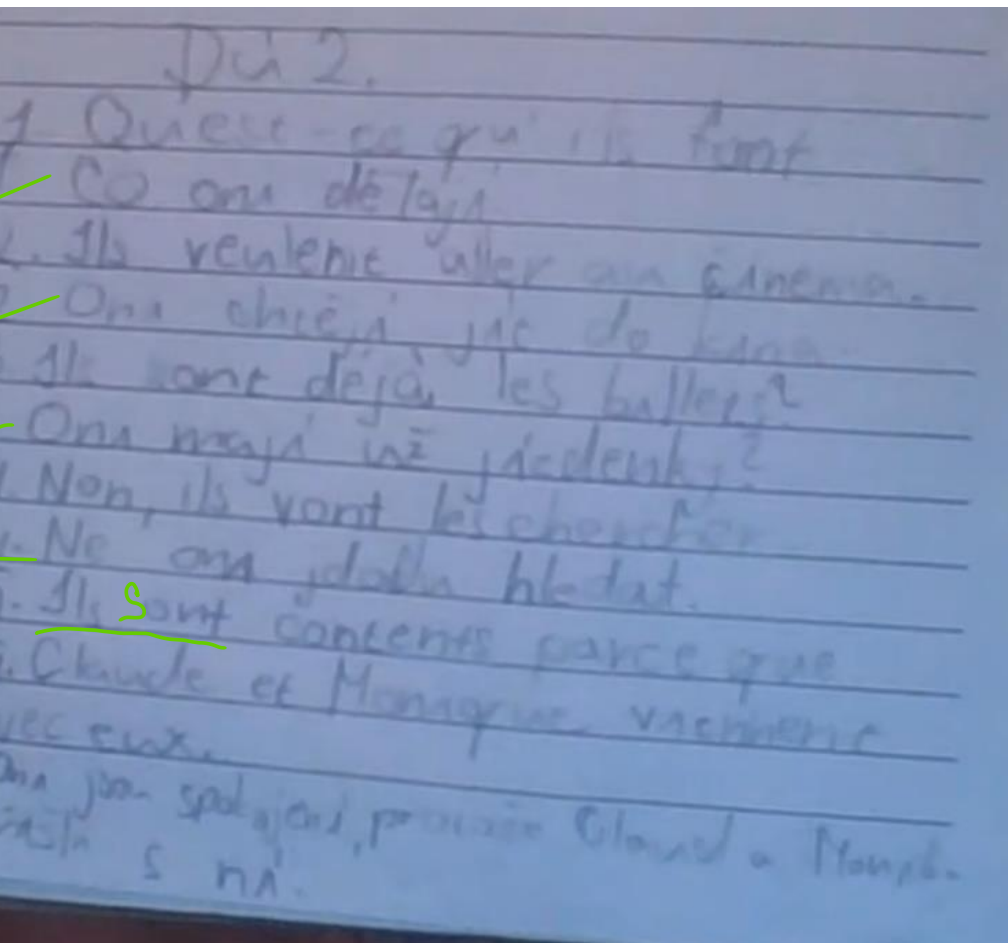 Dú 2.
1 Quest-ce qu' ils font
Co oni dělají
2. Ils veulent aller au cinema.
Oni chtějí jít do kina.
Ils ont déjà les billets?
Oni mají už jízdenky?
Non, ils vont les chercher
Ne oni jdou hledat.
Ils sont contents parce que
Claude et Monique viennent
vec eux.
Oni jsou spokojení, Claud a
s ní.